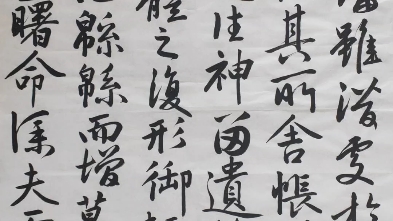 雖潛處於
其所舍悵
往神留遺
體之復形御
緜緜而增慕
曙命僕夫而